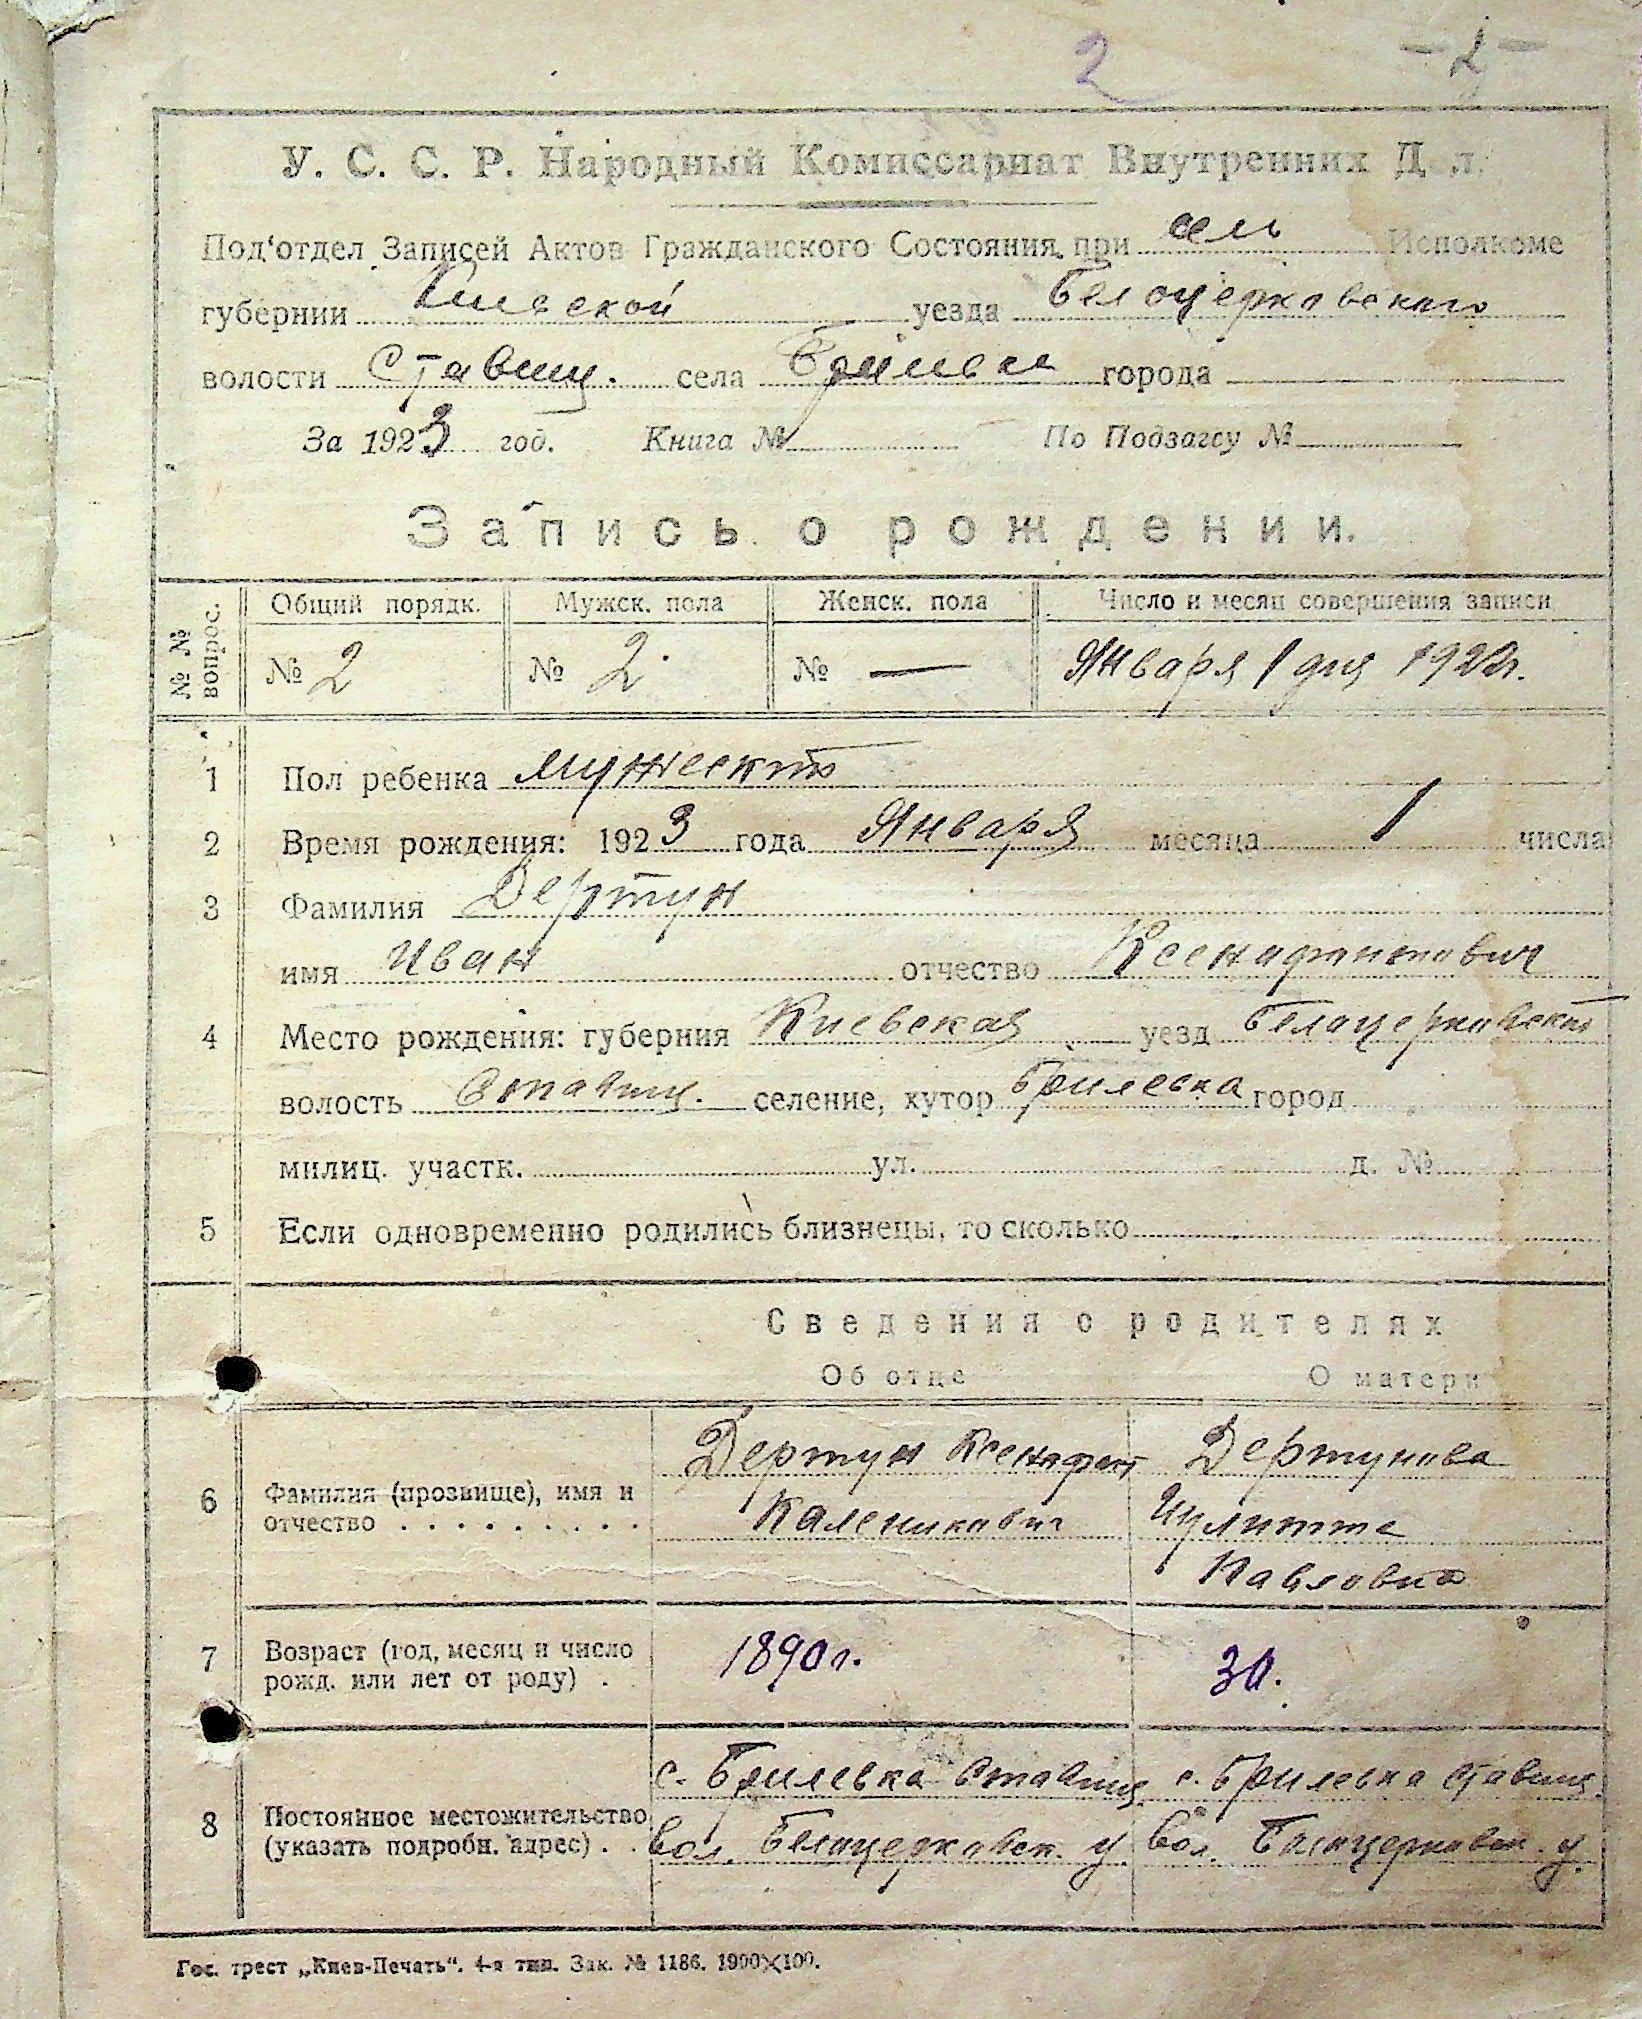 2 - 2 -
У. С. С. Р. Народный Комиссариат Внутренних Д л.
Под'отдел Записей Актов Гражданского Состояния при сель Исполкоме
губернии Киевской уезда Белоцерковского
волости Ставищ. села Брилевка города
За 1923 год. Книга № По Подзагсу №
Запись о рождении.
№ № вопрос. Общий порядк. Мужск. пола Женск. пола Число и месяц совершения записи
№ 2 № 2 № — Января 1 дня
1 Пол ребенка мужеский
2 Время рождения: 1923 года Января месяца 1 числа
3 Фамилия Дертун
имя Иван отчество Ксенафонтович
4 Место рождения: губерния Киевская уезд Белоцерковский
волость Ставищ. селение, хутор Брилевка город
милиц. участк. ул. д. №
5 Если одновременно родились близнецы, то сколько
Сведения о родителях
Об отце О матери
6 Фамилия (прозвище), имя и
отчество . . . . . . . . .
Дертун Ксенафонт
Каленикович
Дертунова
Иулитта
Павловна
7 Возраст (год, месяц и число
рожд. или лет от роду) .
1890 г.
30.
8 Постоянное местожительство
(указать подробн. адрес) . .
с. Брилевка Ставищ.
вол. Белоцерковск. у.
с. Брилевка Ставищ.
вол. Белоцерковск. у.
Гос. трест „Киев-Печать“. 4-я тип. Зак. № 1186. 1900×100.